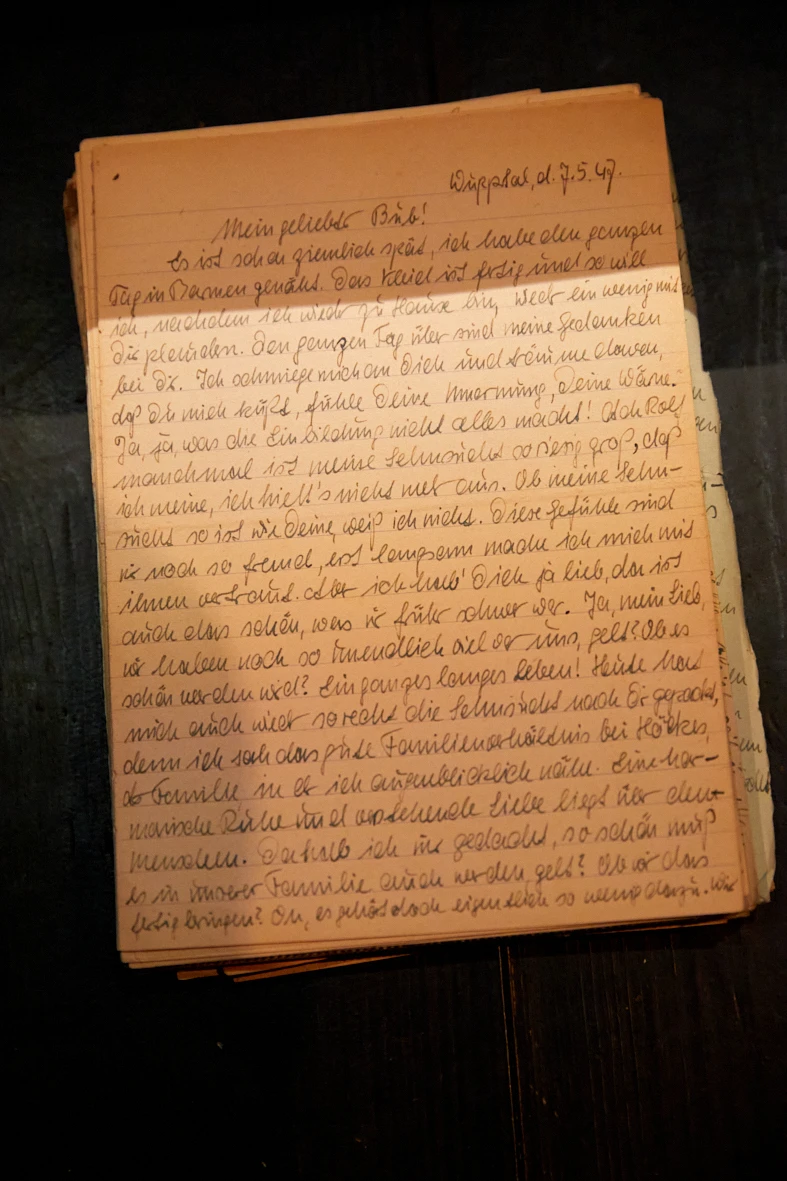 Wupptal, d. 7.5.47.
Mein geliebter Bub!
Es ist schon ziemlich spät, ich habe den ganzen
Tag in Barmen genäht. Das Kleid ist fertig und so will
ich, nachdem ich wieder zu Hause bin, wieder ein wenig mit
Dir plaudern. Den ganzen Tag über sind meine Gedanken
bei Dir. Ich schmiege mich an Dich und träume davon,
daß Du mich küßt, fühle Deine Umarmung, Deine Wärme.
Ja, ja, was die Einbildung nicht alles macht! Ach Rolf
manchmal ist meine Sehnsucht so riesig groß, daß
ich meine, ich hielt's nicht mehr aus. Ob meine Sehn-
sucht so ist wie Deine, weiß ich nicht. Diese Gefühle sind
mir noch so fremd, erst langsam mache ich mich mit
ihnen vertraut. Aber ich hab' Dich ja lieb, da ist
auch das schön, was mir früher schwer war. Ja, mein Lieb,
wir haben noch so unendlich viel vor uns, gelt? Ob es
schön werden wird? Ein ganzes langes Leben! Heute hat
mich auch wieder so recht die Sehnsucht nach Dir gepackt,
denn ich sah das gute Familienverhältnis bei
der Familie in der ich augenblicklich nähe. Eine har-
monische Ruhe und verstehende Liebe liegt über den
Menschen. Da hab ich mir gedacht, so schön muß
es in unserer Familie auch werden, gelt? Ob wir das
fertig bringen? Oh, es gehört doch eigentlich so wenig dazu. Wir